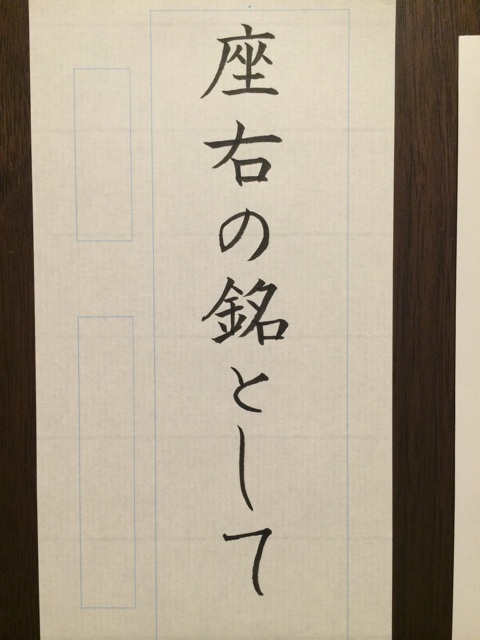 座右の銘として